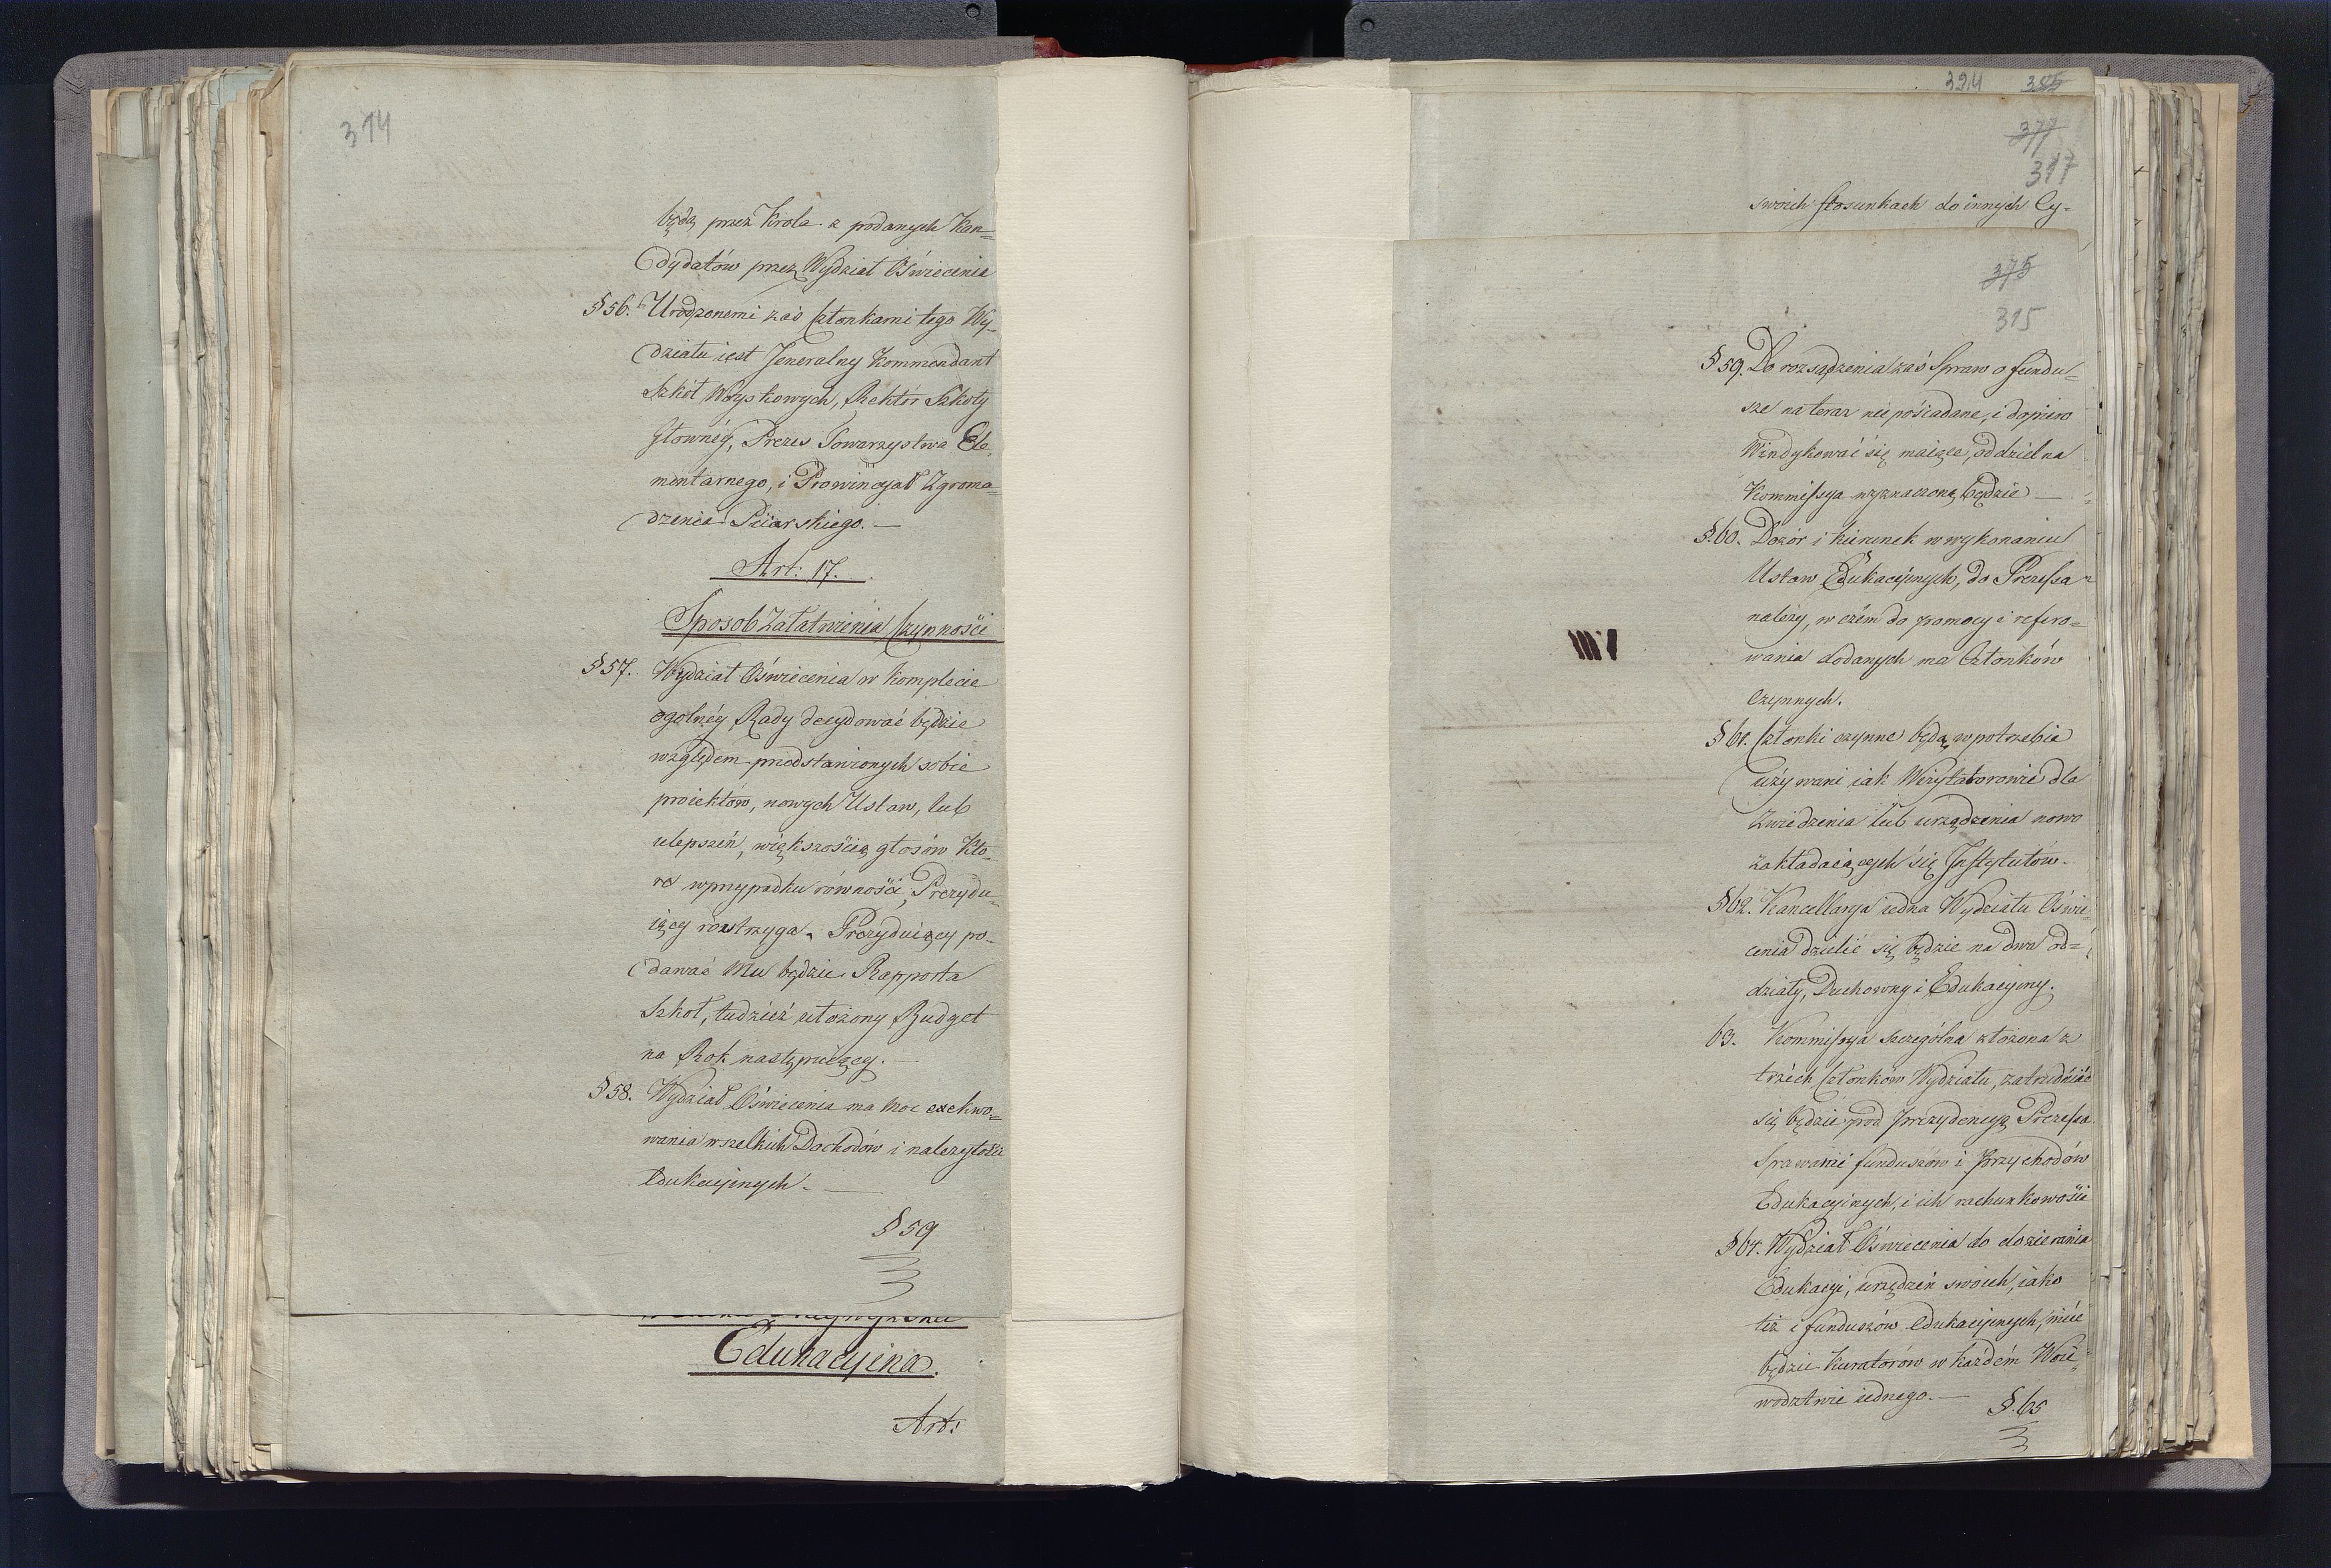 314
będą przez Krola z podanych Kan=
dydatów przez Wydział Oświecenia
§ 56. Urodzonemi zaś Członkami tego Wy-
działu iest Jeneralny Kommendant
Szkół Woyskowych, Rektór Szkoły
Głownéy, Prezes Towarzystwa Ele
mentarnego, i Prowincyał Zgroma-
dzenia Piiarskiego. —
Art: 17.
Sposob Załatwienia Czynności
§ 57. Wydział Oświecenia w komplecie
ogolnéy Rady decydować będzie
względem przedstawionych sobie
proiektów, nowych Ustaw, lub
ulepszeń, większością głosów Któ-
re w przypadku równości, Prezydu-
iący rozstrzyga. Prezyduiący po-
dawać Mu będzie Rapporta
Szkół, tudzież ułożony Budget
na Rok następuiący. —
§ 58. Wydział Oświecenia ma moc exekwo=
wania wszelkich Dochodów i należytości
Edukacyinych. —
§ 59
Edukacyina.
Art:
394 385
377
317
swoich stosunkach do innych Cy=
375
315
§ 59. Do rozsądzenia zaś Spraw o fundu=
sze na teraz nie pośiadane, i dopiero
Windykować się maiące, oddzielna
Kommissya wyznaczoną będzie —
§. 60. Dozór i kierunek w wykonaniu
Ustaw Edukacyinych, do Prezessa
należy, w czém do pomocy i refero=
wania dodanych ma Członków
Czynnych.
§ 61. Członki czynne będą w potrzebie
używani iak Wizytatorowie dla
Zwiedzenia lub urządzenia nowo
zakładaiących się Instytutów.
§ 62. Kancellarya iedna Wydziału Oświe
cenia dzielić się będzie na dwa od=
działy, Duchowny i Edukacyiny.
63. Kommissya szczególna złożona z
trzéch Członków Wydziału, zatrudniać
się będzie pod prezydencyą Prezessa
Sprawami funduszów i przychodów
Edukacyinych, i ich rachunkowości
§ 64. Wydział Oświecenia do dozierania
Edukacyi, urządzeń swoich, iako
też i funduszów edukacyinych, mieć
będzie Kuratorów w każdém Woie-
wodztwie iednego. —
§. 65